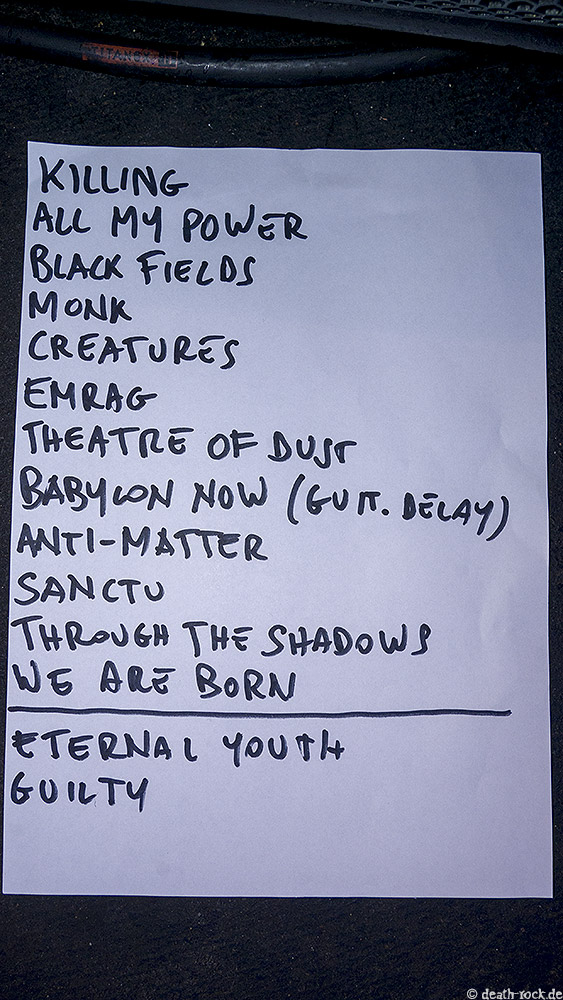 KILLING
ALL MY POWER
BLACK FIELDS
MONK
CREATURES
EMRAG
THEATRE OF DUST
BABYLON NOW (GUIT. DELAY)
ANTI-MATTER
SANCTU
THROUGH THE SHADOWS
WE ARE BORN
ETERNAL YOUTH
GUILTY
© death-rock.de